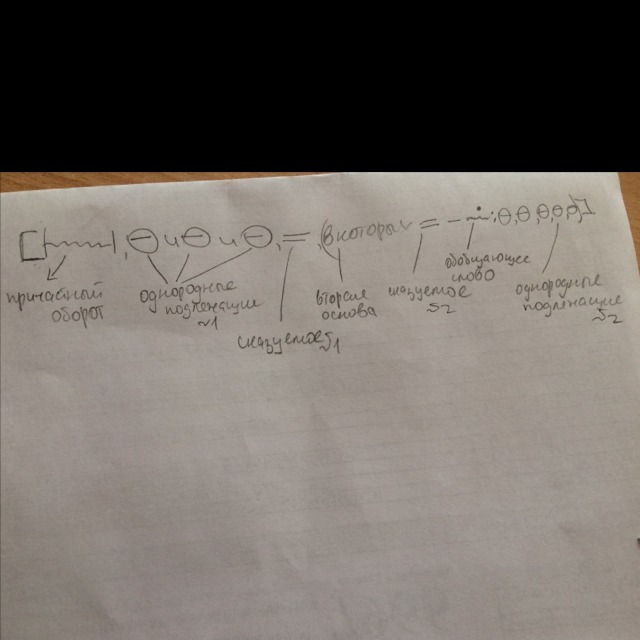 [ , и и , = , (в которых = - : , , , , )]
причастный
оборот
однородные
подлежащие
~1
сказуемое ~1
вторая
основа
сказуемое
~2
обобщающее
слово
однородные
подлежащие
~2